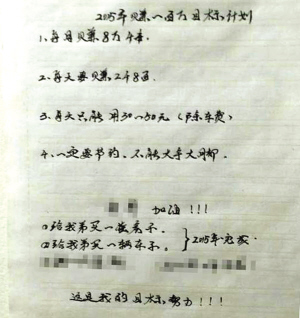 2015年赚一百万目标计划
1、每月赚8万4千.
2、每天要赚248百.
3、每天只能用30～50元（除车费）
4、一定要节约、不能大手大脚.
加油!!!
①给我弟买一套房子.
②给我弟买一辆车子.
}2015年完成.
这是我的目标努力!!!